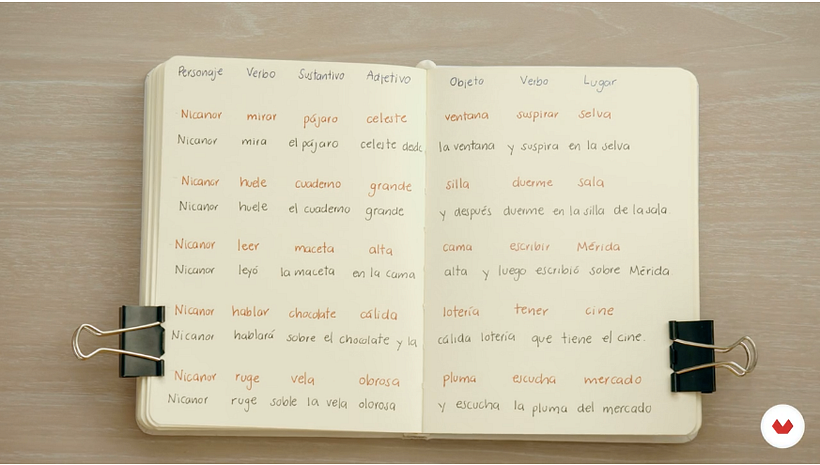 Personaje Verbo Sustantivo Adjetivo Objeto Verbo Lugar
Nicanor mirar pájaro celeste ventana suspirar selva
Nicanor mira el pájaro celeste desde la ventana y suspira en la selva
Nicanor huele cuaderno grande silla duerme sala
Nicanor huele el cuaderno grande y después duerme en la silla de la sala
Nicanor leer maceta alta cama escribir Mérida
Nicanor leyó la maceta en la cama alta y luego escribió sobre Mérida
Nicanor hablar chocolate cálida lotería tener cine
Nicanor hablará sobre el chocolate y la cálida lotería que tiene el cine.
Nicanor ruge vela olorosa pluma escucha mercado
Nicanor ruge soble la vela olorosa y escucha la pluma del mercado